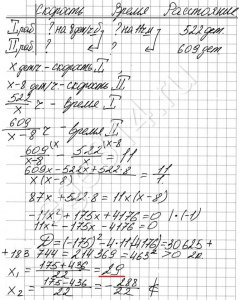 Скорость Время Расстояние
I раб ? на 8 дет/ч б ? на 11ч м 522 дет
II раб ? ? 609 дет
x дет/ч - скорость I
x-8 дет/ч - скорость II
522/x ч - время I
609/x-8 ч - время II
609/x-8 - 522/x = 11
609x-522x+522·8/x(x-8) = 11/1
87x+522·8 = 11x(x-8)
-11x²+175x+4176=0 |·(-1)
11x²-175x-4176=0
D=(-175)²-4·11·(4176)=30625+
+183 744=214369=463²>0 2к.
x₁ = 175+436/22 = 29
x₂ = 175-436/22 = -288/22 ¢